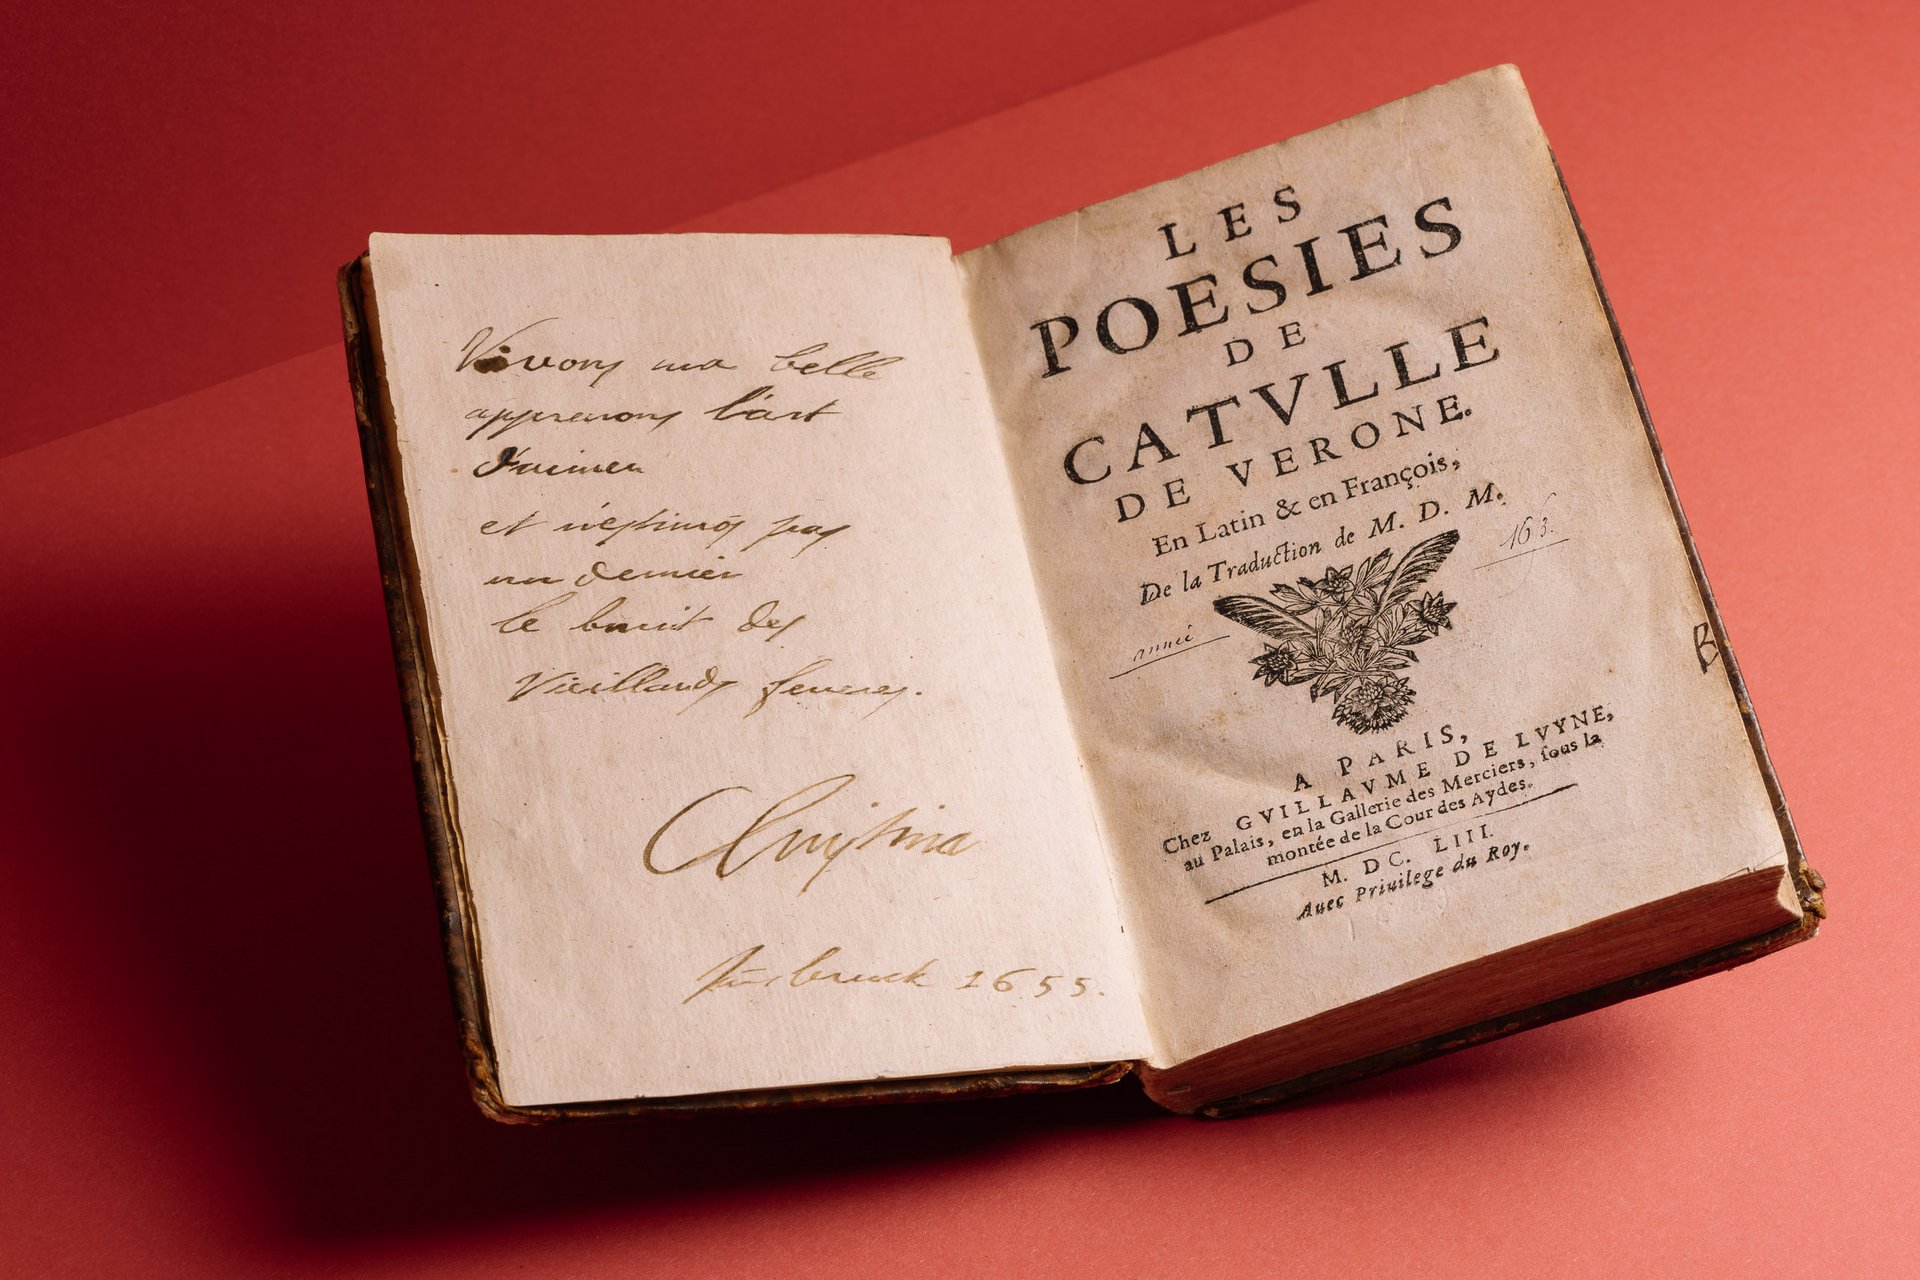 Vivons ma belle
apprenons l'art
d'aimer
et n'estimons pas
un denier
le bruit des
Vieillards seueres.
Christina
Insbruck 1655.
LES
POESIES
DE
CATVLLE
DE VERONE.
En Latin & en François,
De la Traduction de M. D. M.
année
163.
B
A PARIS,
Chez GVILLAVME DE LVYNE,
au Palais, en la Gallerie des Merciers, ſous la
montée de la Cour des Aydes.
M. DC. LIII.
Auec Priuilege du Roy.